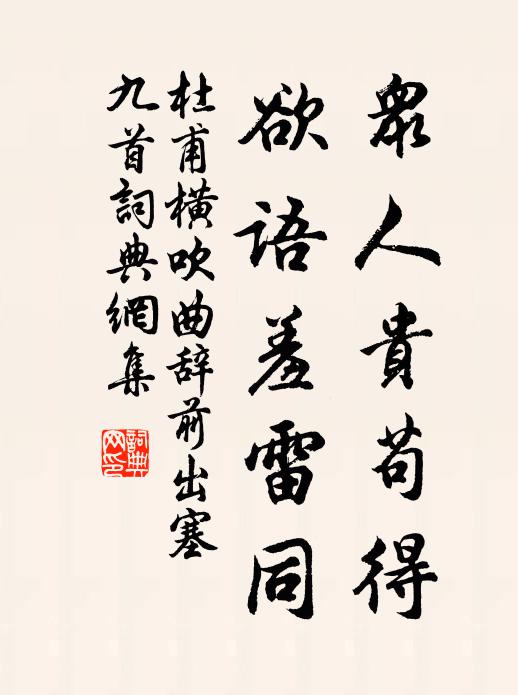 眾人貴苟得
欲語羞雷同
杜甫橫吹曲辞前出塞
九首詞典網集
詞典
网印